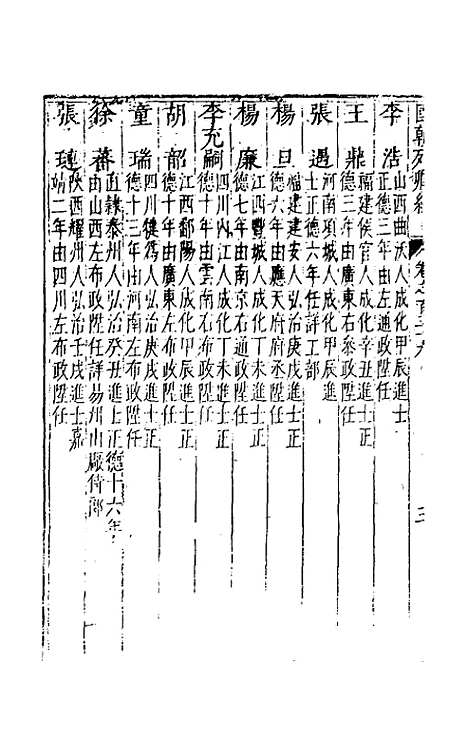 國朝列卿紀 卷之一百三十九 三
李浩 山西曲沃人成化甲辰進士
正德三年由左通政陞任
王鼎 福建侯官人成化辛丑進士正
德三年由廣東右參政陞任
張遇 河南項城人成化甲辰進
士正德六年任詳工部
楊旦 福建建安人弘治庚戌進士正
德六年由應天府府丞陞任
楊廉 江西豐城人成化丁未進士正
德七年由南京右通政陞任
李充嗣 四川內江人成化丁未進士正
德十年由雲南右布政陞任
胡韶 江西鄱陽人成化甲辰進士正
德十年由廣東左布政陞任
童瑞 四川犍為人弘治庚戌進士正
德十三年河南左布政陞任
徐蕃 直隸泰州人弘治癸丑進士正德十六年
由山西左布政陞任詳易州山廠侍郎
張璉 陝西耀州人弘治壬戌進士嘉
靖二年由四川左布政陞任